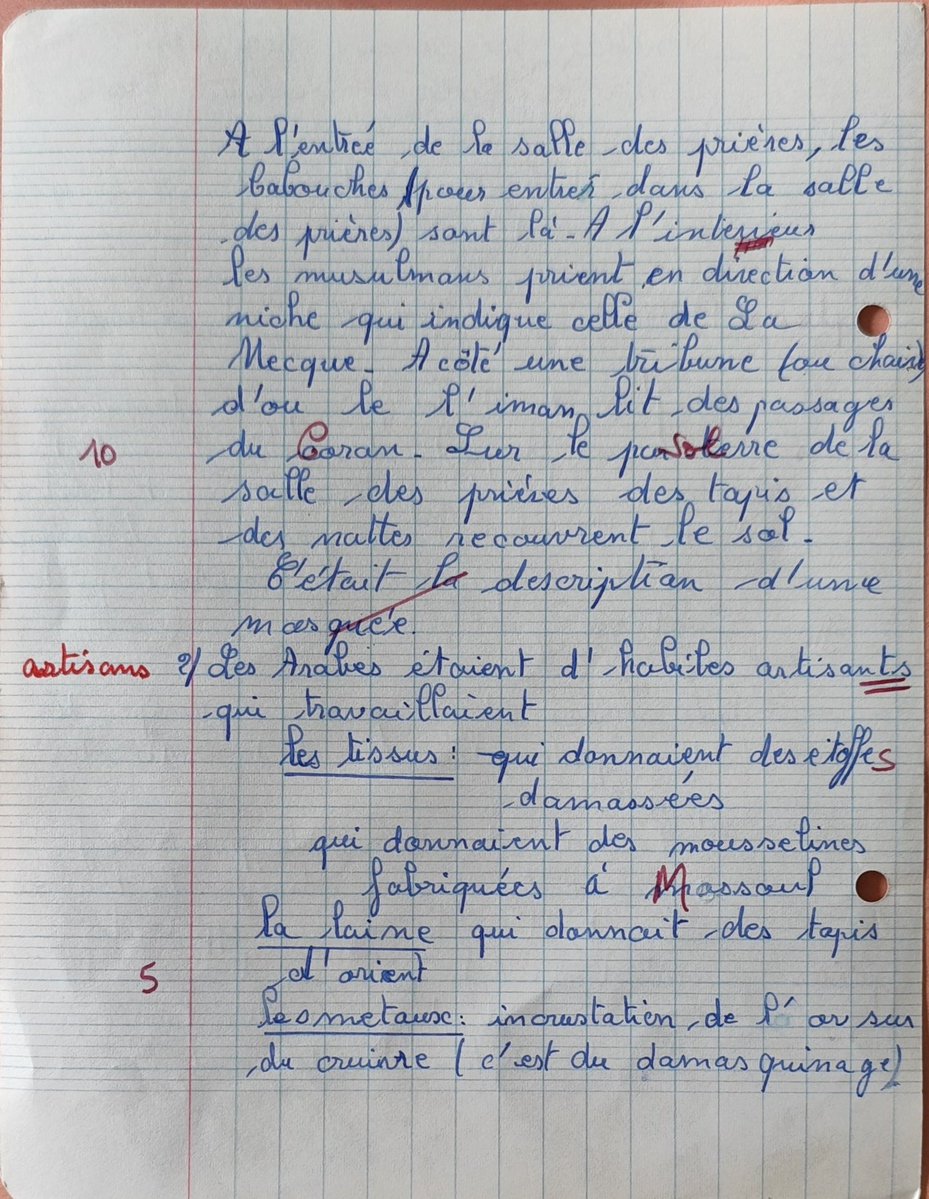 A l'entreé de la salle des prières, les
babouches (pour entrer dans la salle
des prières) sont là. A l'interieur
les musulmans prient en direction d'une
niche qui indique celle de La
Mecque. A côté une tribune (ou chaire)
d'ou le l'iman lit des passages
10 du Coran. Sur le parterre de la
salle des prières des tapis et
des nattes recouvrent le sol.
C'était la description d'une
mosquée.
artisans 2/ Les Arabes étaient d'habiles artisants
qui travaillaient
les tissus : qui donnaient des etoffes
damassées
qui donnaient des mousselines
fabriquées à Mossoul
la laine qui donnait des tapis
5 d'orient
les metaux : incrustation de l'or sur
du cuivre (c'est du damasquinage)